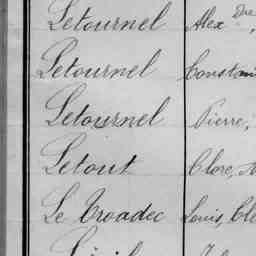 Letournel Alexdre,
Letournel Constan
Letournel Pierre,
Letout Clore,
Le Troadec Louis, Cle